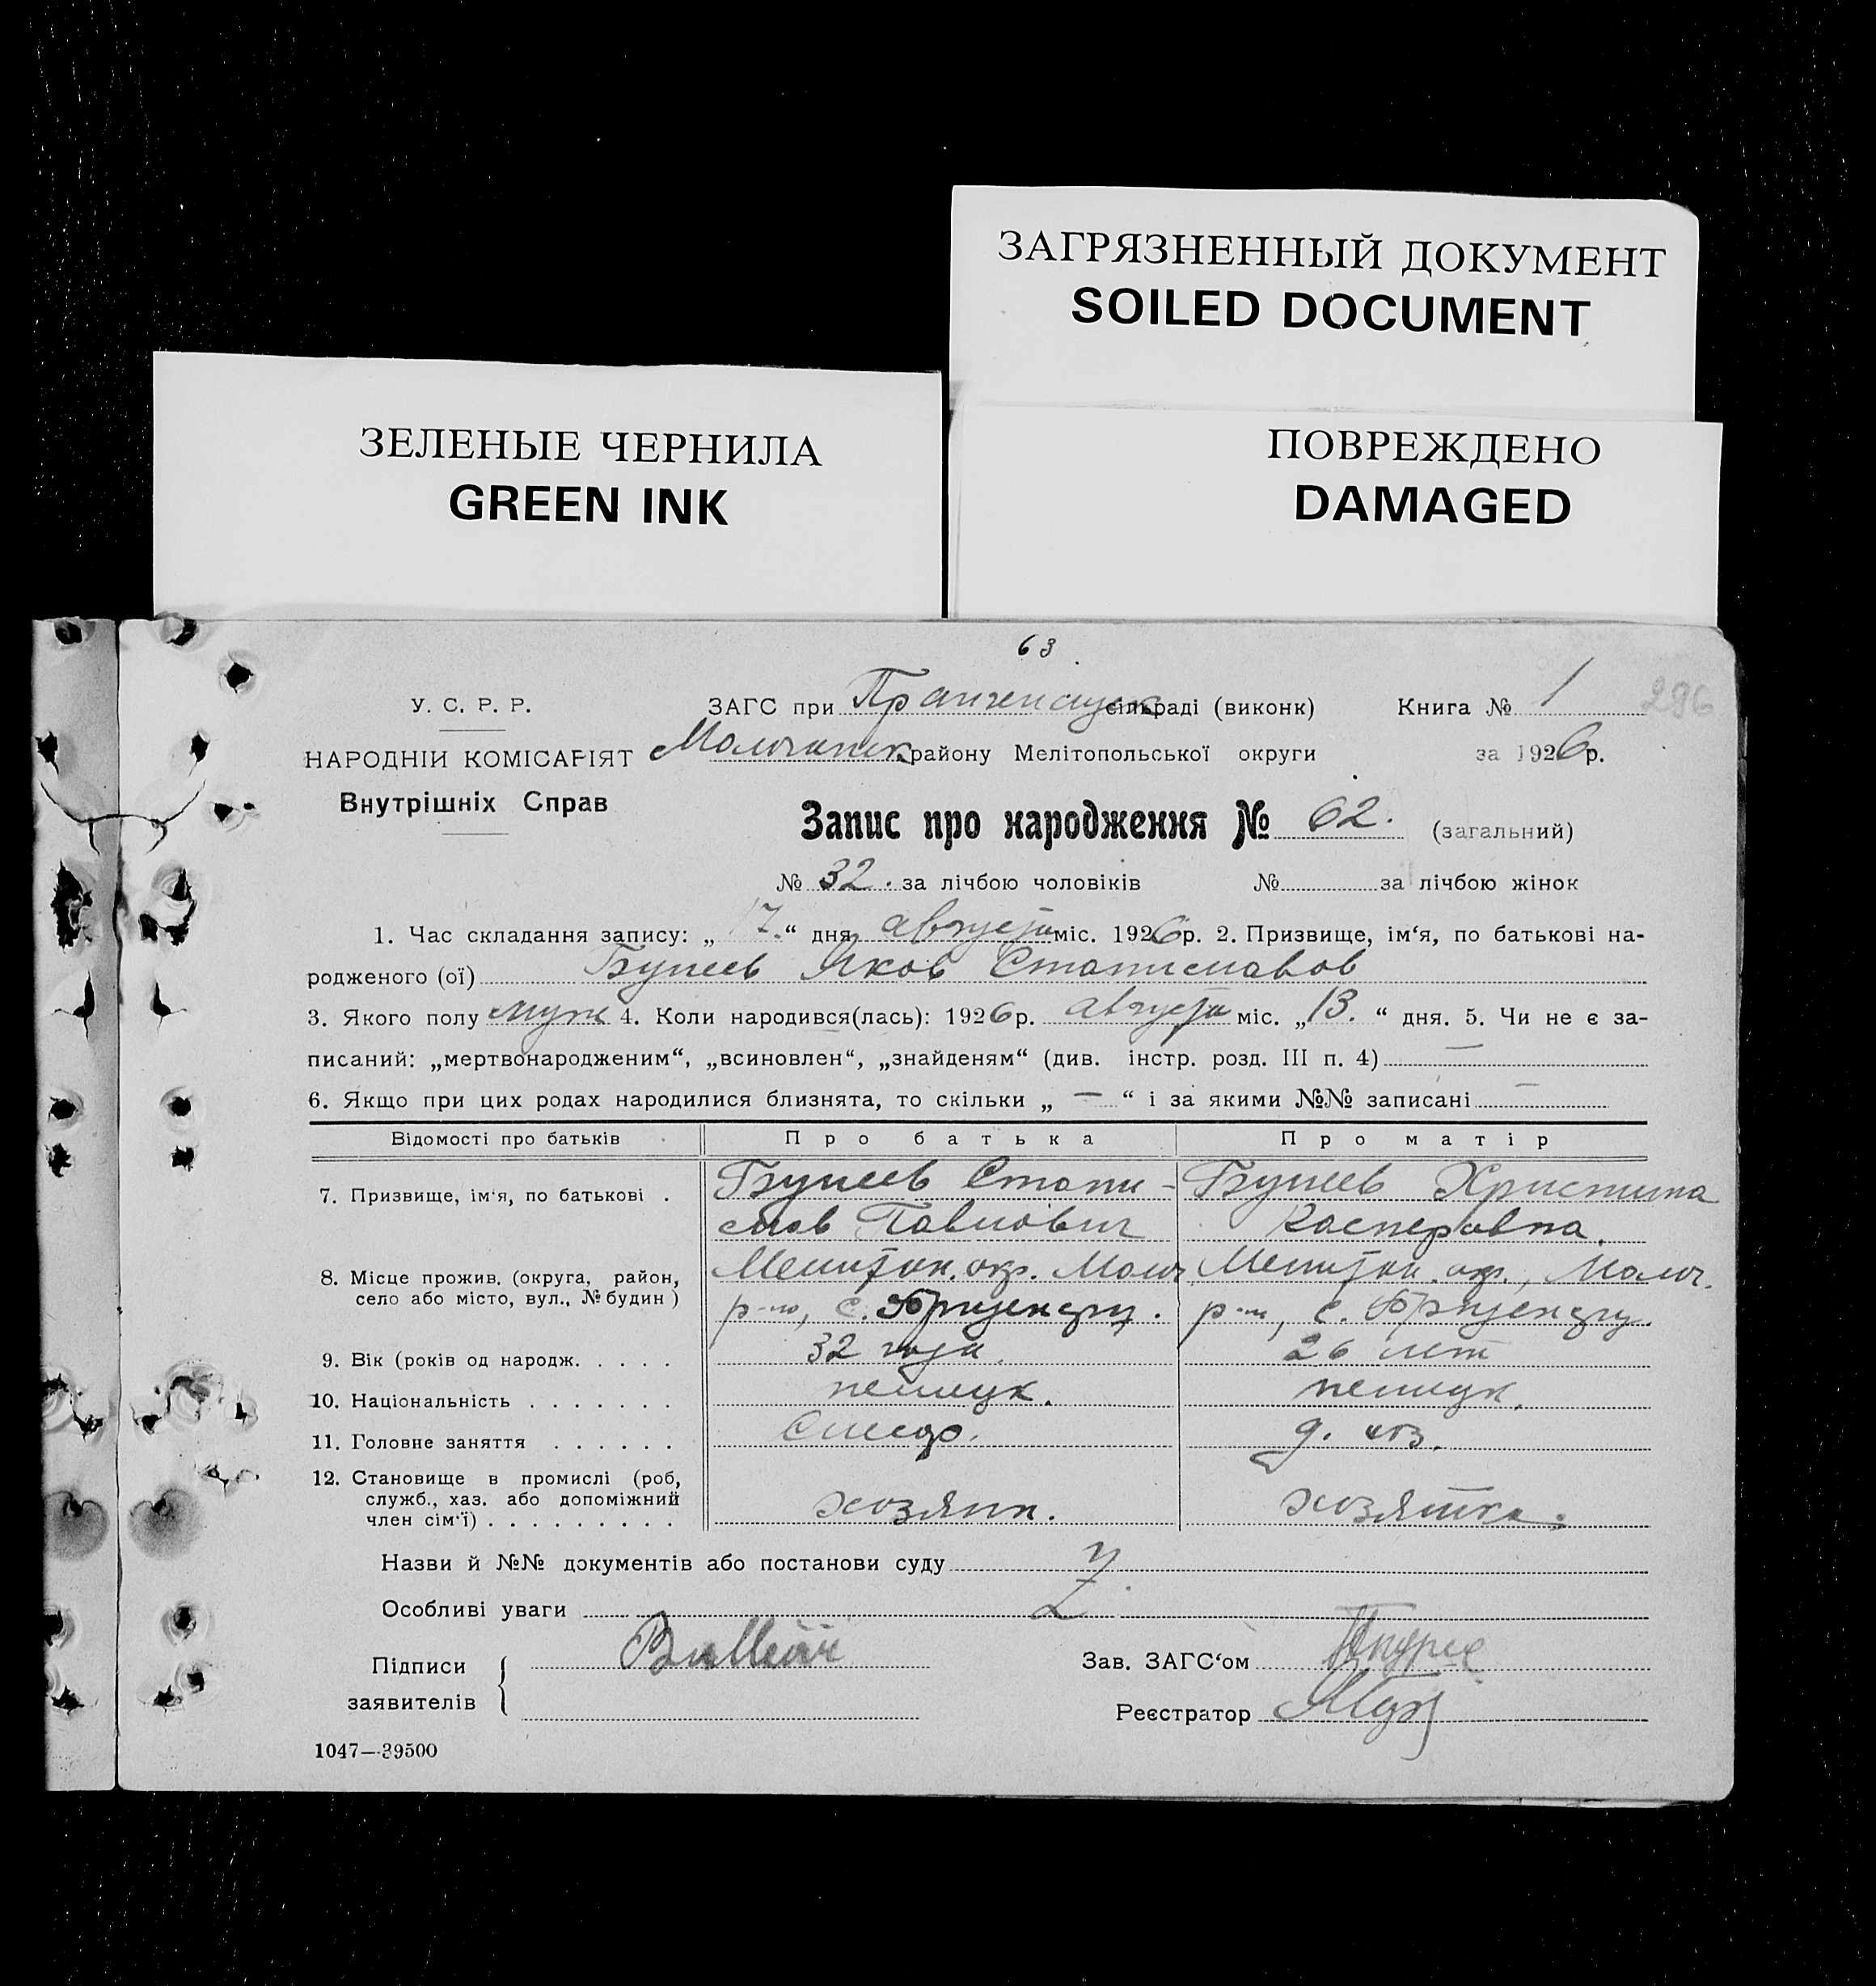 ЗАГРЯЗНЕННЫЙ ДОКУМЕНТ
SOILED DOCUMENT
ЗЕЛЕНЫЕ ЧЕРНИЛА
GREEN INK
ПОВРЕЖДЕНО
DAMAGED
63
296
У. С. Р. Р.
ЗАГС при сільраді (виконк) Книга № 1
НАРОДНІИ КОМІСАРІЯТ Молочанск району Мелітопольської округи за 1926 р.
Внутрішніх Справ
Запис про народження № 62. (загальний)
№ 32. за лічбою чоловіків № за лічбою жінок
1. Час складання запису: „17.“ дня августа міс. 1926 р. 2. Призвище, ім‘я, по батькові на-
родженого (ої) Яков Станиславов
3. Якого полу муж 4. Коли народився(лась): 1926 р. августа міс. „13.“ дня. 5. Чи не є за-
писаний: „мертвонародженим“, „всиновлен“, „знайденям“ (див. інстр. розд. III п. 4) —
6. Якщо при цих родах народилися близнята, то скільки „ — “ і за якими №№ записані —
Відомості про батьків Про батька Про матір
7. Призвище, ім‘я, по батькові . Стани- Христина
слав Павлович Касперовна.
8. Місце прожив. (округа, район, Мелитоп. окр. Молоч Мелитоп. окр., Молоч.
село або місто, вул., № будин ) р-на, с. р-на, с.
9. Вік (років од народж. . . . . 32 года. 26 лет
10. Національність . . . . . . . немцук. немцук.
11. Головне заняття . . . . . . д. хоз.
12. Становище в промислі (роб,
служб., хаз. або допоміжний хозяин. хозяйка.
член сім‘ї) . . . . . . . . .
Назви й №№ документів або постанови суду
Особливі уваги
Підписи Зав. ЗАГС‘ом
заявителів Реєстратор
1047—39500